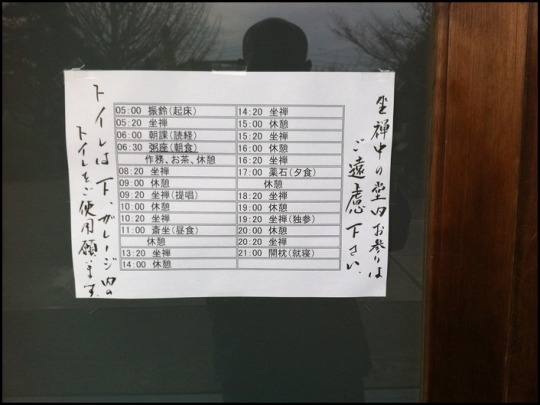 坐禅中の堂内お参りは
ご遠慮下さい、
05:00 振鈴(起床)
05:20 坐禅
06:00 朝課(読経)
06:30 粥座(朝食)
作務、お茶、休憩
08:20 坐禅
09:00 休憩
09:20 坐禅(提唱)
10:00 休憩
10:20 坐禅
11:00 斎坐(昼食)
休憩
13:20 坐禅
14:00 休憩
14:20 坐禅
15:00 休憩
15:20 坐禅
16:00 休憩
16:20 坐禅
17:00 薬石(夕食)
休憩
18:20 坐禅
19:00 休憩
19:20 坐禅(独参)
20:00 休憩
20:20 坐禅
21:00 開枕(就寝)
トイレは下、ガレージ内の
トイレをご使用願います。